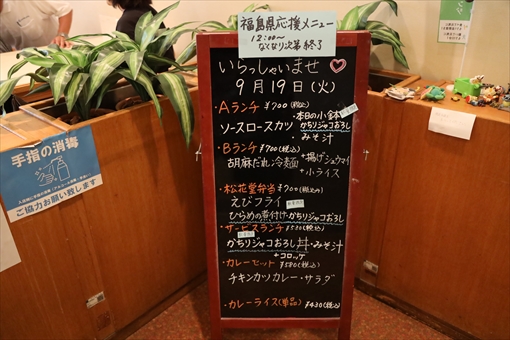 福島県応援メニュー
12:00〜
なくなり次第終了
いらっしゃいませ
9月19日(火)
・Aランチ ¥700(税込)
ソースロースカツ
・本日の小鉢
かちりジャコおろし
・みそ汁
・Bランチ ¥700(税込)
胡麻だれ冷麺
+揚げシュウマイ
+小ライス
・松花堂弁当 ¥700(税込)
えびフライ
ひらめの煮付け・かちりジャコおろし
・サービスランチ ¥530(税込)
かちりジャコおろし丼・みそ汁
+コロッケ
・カレーセット ¥580(税込)
チキンカツカレー・サラダ
・カレーライス(単品) ¥430(税込)
手指の消毒
ご協力お願い致します